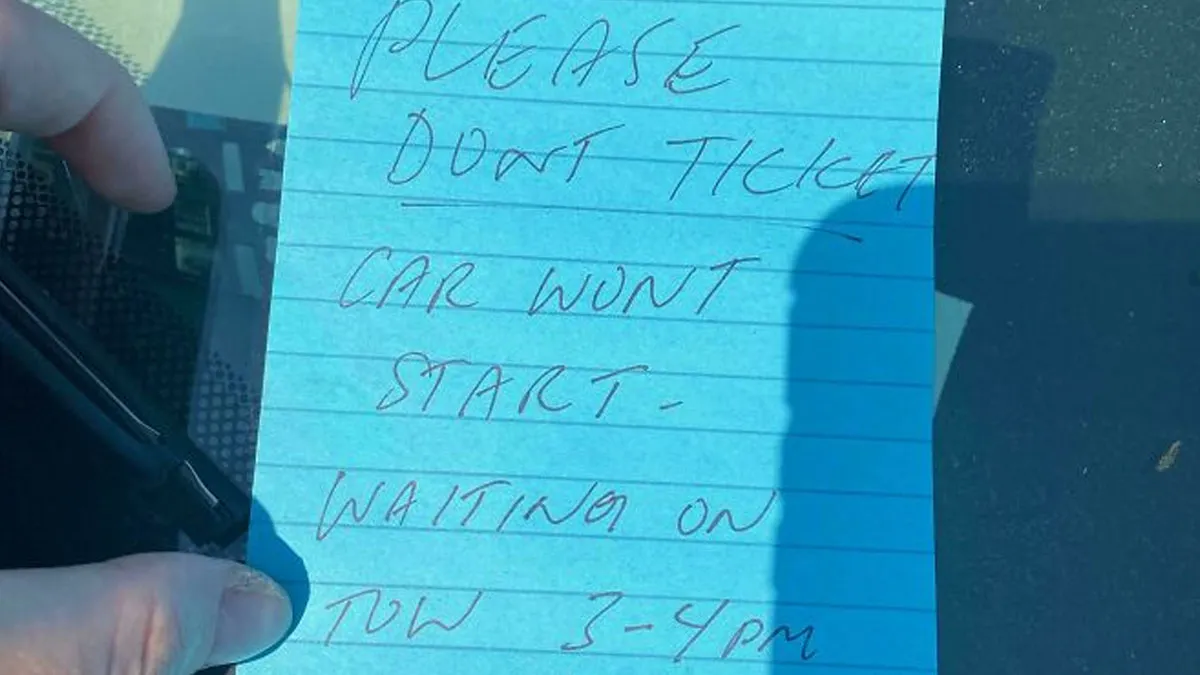 PLEASE
DONT TICKET
CAR WONT
START -
WAITING ON
TOW 3-4PM